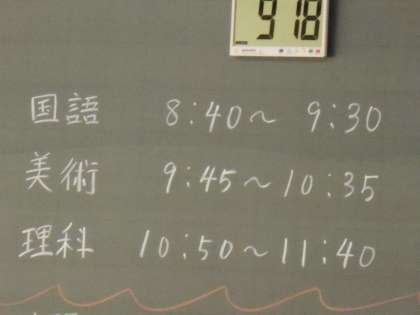 918
国語 8:40～ 9:30
美術 9:45～10:35
理科 10:50～11:40